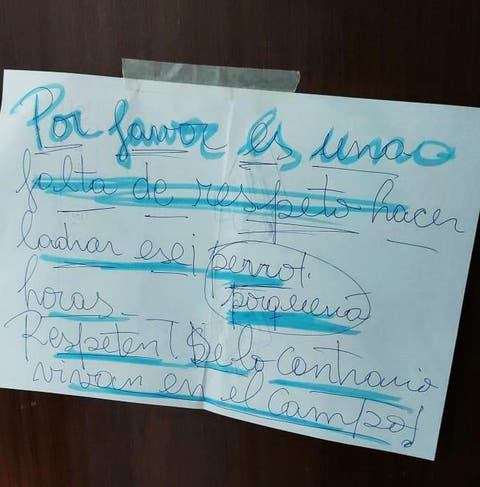 Por favor es una
falta de respeto hacer
ladrar ese ¡perro!
porquería
horas.
Respeten! De lo contrario
vivan en el campo!